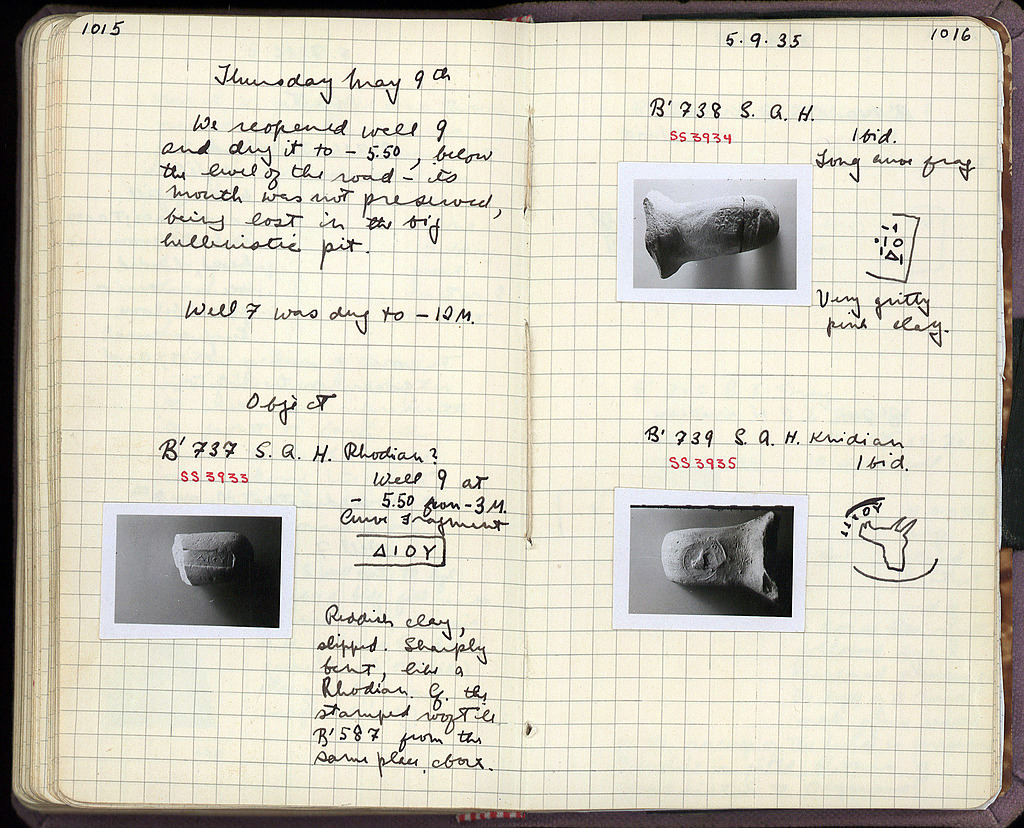 1015
Thursday May 9th
We reopened well 9
and dug it to - 5.50, below
the level of the road - its
mouth was not preserved,
being lost in the big
hellenistic pit.
Well 7 was dug to - 12 M.
Object
B' 737 S. A. H. Rhodian?
SS 3933
Well 9 at
- 5.50 from - 3 M.
Curve fragment
ΔΙΟΥ
Reddish clay,
slipped. Sharply
bent, like a
Rhodian. Cf. the
stamped rooftile
B' 587 from the
same place, above.
5.9.35
1016
B' 738 S. A. H.
SS 3934
Ibid.
Long curve frag
Very gritty
pink clay.
B' 739 S. A. H. Knidian
SS 3935
Ibid.